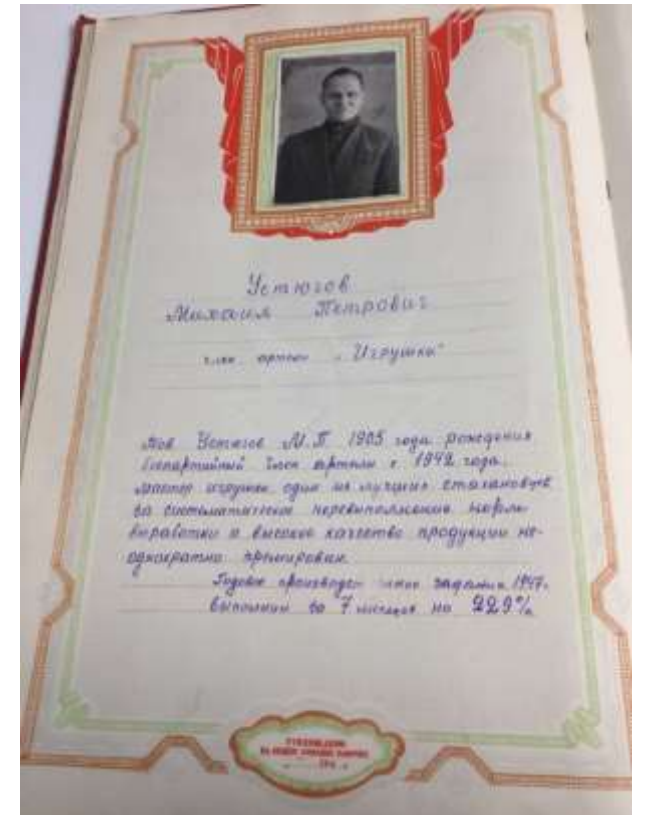 Устюгов
Михаил Петрович
член артели „Игрушка"
Тов Устюгов М.П 1905 года рождения
беспартийный член артели с 1942 года,
мастер игрушек один из лучших стахановцев
за систематическое перевыполнение норм
выработки и высокое качество продукции не-
однократно премирован.
Годовое производст задание 1947г
выполнил за 7 месяцев на 229%